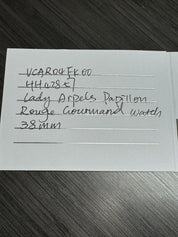 VCARO4FK00
HH42857
Lady Arpels Papillon
Rouge Gourmand Watch
38mm